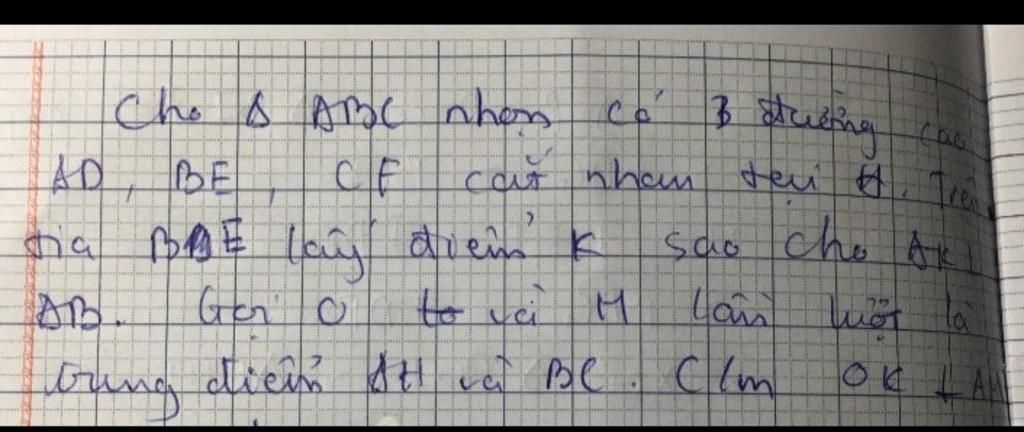 Cho Δ ABC nhọn có 3 đường cao
AD, BE, CF cắt nhau tại H. Trên
tia BE lấy điểm K sao cho AK ⊥
AB. Gọi O và M lần lượt là
trung điểm AH và BC. C/m OK ⊥ AM